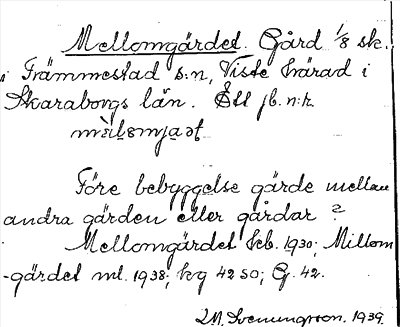 Mellomgärdet. Gård 1/8 sk.
i Främmestad s:n, Viste härad i
Skaraborgs län. Ett jb. n:r.
Före bebyggelse gärde mellan
andra gärden eller gårdar?
Mellomgärdet kb. 1930; Millom
-gärdet ml. 1938; kg 42 SO; G. 42.
1939